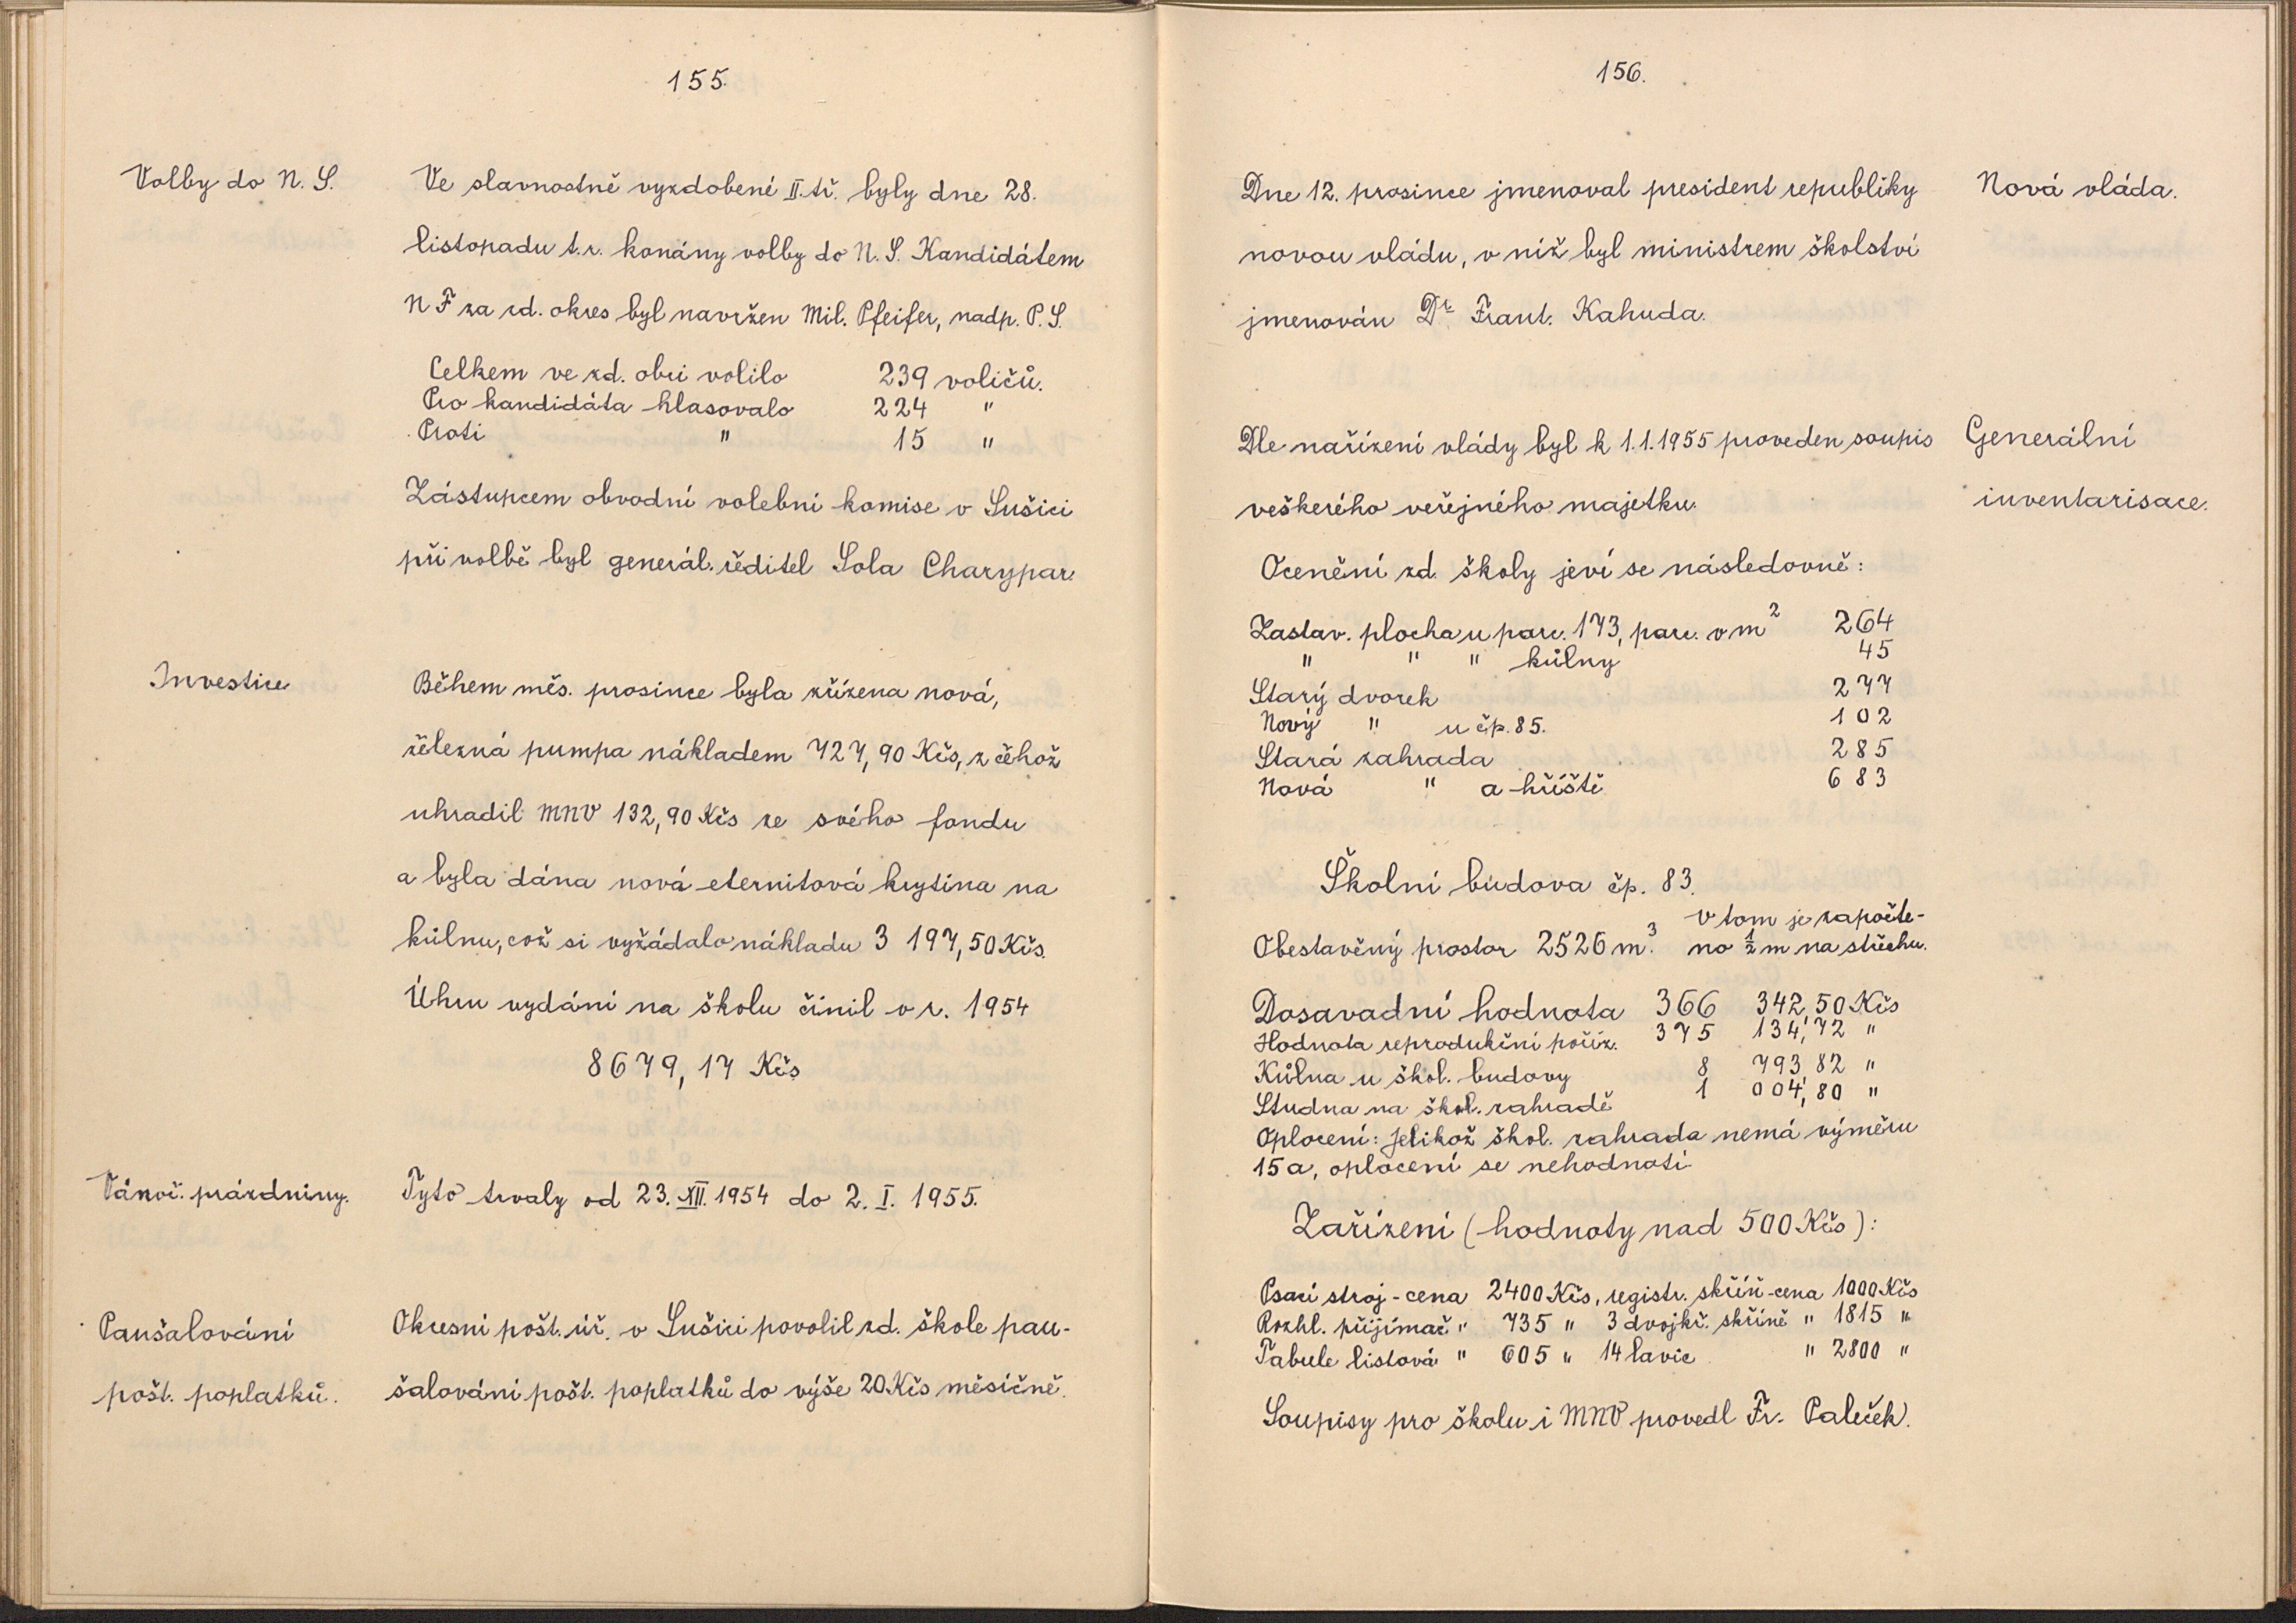 155.
Volby do N. S.
Ve slavnostně vyzdobené II. tř. byly dne 28.
listopadu t. r. konány volby do N. S. Kandidátem
NF za zd. okres byl navržen Mil. Pfeifer, nadp. P. S.
Celkem ve zd. obci volilo 239 voličů.
Pro kandidáta hlasovalo 224 "
Proti " 15 "
Zástupcem obvodní volební komise v Sušici
při volbě byl generál. ředitel Sola Charypar.
Investice
Během měs. prosince byla zřízena nová,
železná pumpa nákladem 727,90 Kčs, z čehož
uhradil MNV 132,90 Kčs ze svého fondu
a byla dána nová eternitová krytina na
kůlnu, což si vyžádalo nákladu 3 197,50 Kčs.
Úhrn vydání na školu činil v r. 1954
8679,17 Kčs
Vánoč. prázdniny.
Tyto trvaly od 23. XII. 1954 do 2. I. 1955.
Paušalování
pošt. poplatků.
Okresní pošt. úř. v Sušici povolil zd. škole pau-
šalování pošt. poplatků do výše 20 Kčs měsíčně.
156.
Dne 12. prosince jmenoval president republiky
novou vládu, v níž byl ministrem školství
jmenován Dr Frant. Kahuda.
Nová vláda.
Dle nařízení vlády byl k 1.1.1955 proveden soupis
veškerého veřejného majetku.
Generální
inventarisace.
Ocenění zd. školy jeví se následovně:
Zastav. plocha u parc. 173, parc. v m² 264
" " " kůlny 45
Starý dvorek 277
Nový " u čp. 85. 102
Stará zahrada 285
Nová " a hřiště 683
Školní budova čp. 83.
Obestavěný prostor 2526 m³. V tom je započte-
no ½ m na střechu.
Dosavadní hodnota 366 342,50 Kčs
Hodnota reprodukční poříz. 375 134,72 "
Kůlna u škol. budovy 8 793,82 "
Studna na škol. zahradě 1 004,80 "
Oplocení: Jelikož škol. zahrada nemá výměru
15 a, oplocení se nehodnotí.
Zařízení (hodnoty nad 500 Kčs):
Psací stroj - cena 2400 Kčs, registr. skříň - cena 1000 Kčs
Rozhl. přijímač " 735 " 3 dvojkř. skříně " 1815 "
Tabule listová " 605 " 14 lavic " 2800 "
Soupisy pro školu i MNV provedl Fr. Paleček.